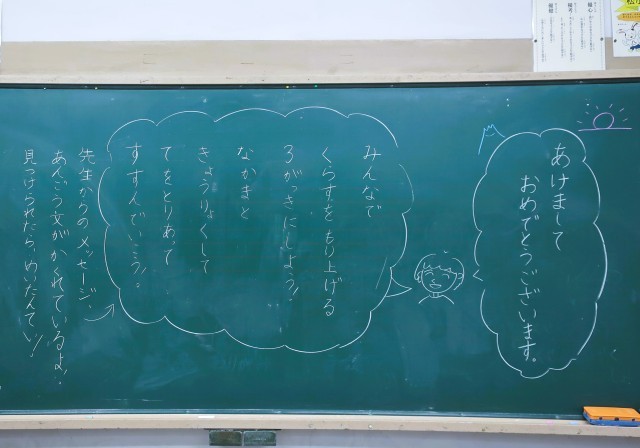 あけまして
おめでとうございます。
みんなで
くらすをもり上げる
3がっきにしよう!
なかまと
きょうりょくして
てをとりあって
すすんでいこう!。
先生からのメッセージ。
あんごう文がかくれているよ!。
見つけられたら、めいたんてい!